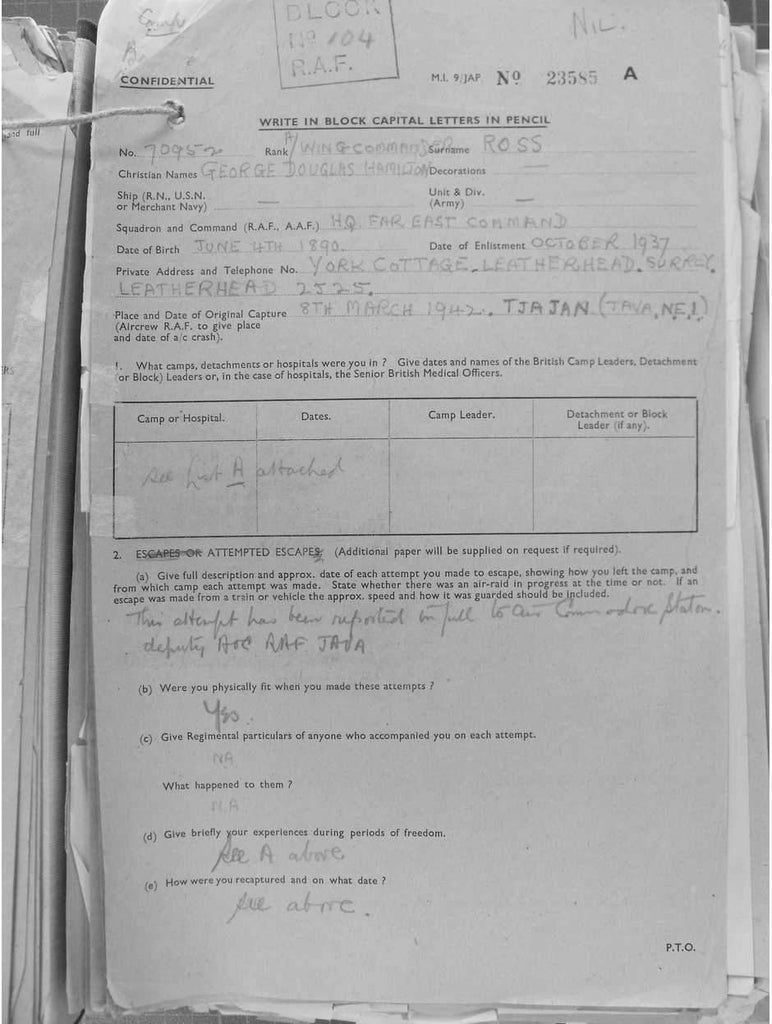 Comp
NIL.
BLOCK
Nº 104
R.A.F.
CONFIDENTIAL
M.I. 9/JAP Nº 23585 A
and full
WRITE IN BLOCK CAPITAL LETTERS IN PENCIL
No. 70952 Rank A/WING COMMANDER Surname ROSS
Christian Names GEORGE DOUGLAS HAMILTON Decorations
Ship (R.N., U.S.N. — Unit & Div. —
or Merchant Navy) (Army)
Squadron and Command (R.A.F., A.A.F.) HQ FAR EAST COMMAND
Date of Birth JUNE 4TH 1890. Date of Enlistment OCTOBER 1937
Private Address and Telephone No. YORK COTTAGE. LEATHERHEAD. SURREY.
LEATHERHEAD 2525.
Place and Date of Original Capture 8TH MARCH 1942. TJAJAN (JAVA, NEI)
(Aircrew R.A.F. to give place
and date of a/c crash).
1. What camps, detachments or hospitals were you in ? Give dates and names of the British Camp Leaders, Detachment
(or Block) Leaders or, in the case of hospitals, the Senior British Medical Officers.
Camp or Hospital. Dates. Camp Leader. Detachment or Block
Leader (if any).
See list A attached
2. ESCAPES OR ATTEMPTED ESCAPES (Additional paper will be supplied on request if required).
(a) Give full description and approx. date of each attempt you made to escape, showing how you left the camp, and
from which camp each attempt was made. State whether there was an air-raid in progress at the time or not. If an
escape was made from a train or vehicle the approx. speed and how it was guarded should be included.
This attempt has been reported in full to Air Commodore Staton.
deputy AOC RAF JAVA
(b) Were you physically fit when you made these attempts ?
Yes.
(c) Give Regimental particulars of anyone who accompanied you on each attempt.
NA
What happened to them ?
NA
(d) Give briefly your experiences during periods of freedom.
See A above
(e) How were you recaptured and on what date ?
See above.
P.T.O.